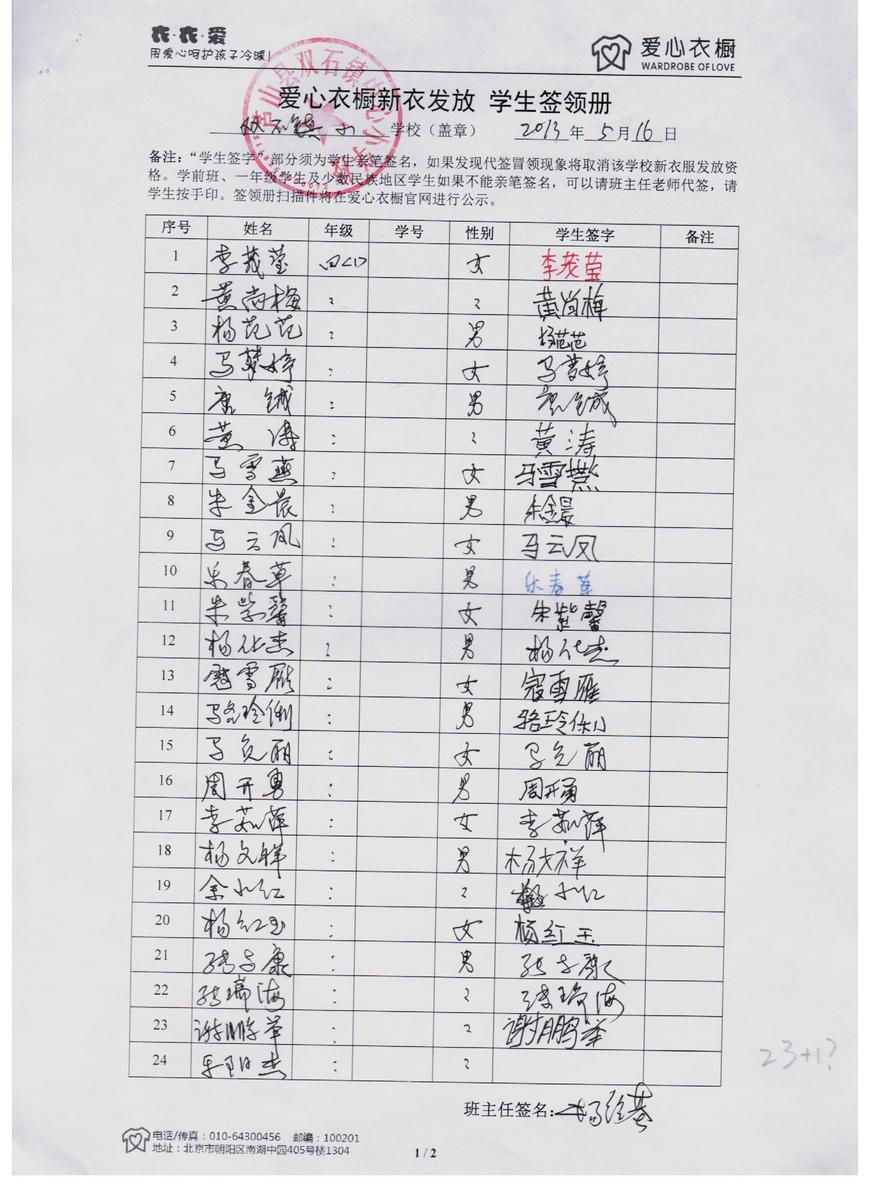 衣·衣·爱
用爱心呵护孩子冷暖!
爱心衣橱
WARDROBE OF LOVE
爱心衣橱新衣发放 学生签领册
双石镇 小 学校（盖章） 2013 年 5 月 16 日
芦山县双石镇中心小学校
备注：“学生签字”部分须为学生亲笔签名，如果发现代签冒领现象将取消该学校新衣服发放资
格。学前班、一年级学生及少数民族地区学生如果不能亲笔签名，可以请班主任老师代签，请
学生按手印。签领册扫描件将在爱心衣橱官网进行公示。
序号 姓名 年级 学号 性别 学生签字 备注
1 李茂莹 四(1) 女 李茂莹
2 黄尚梅 黄尚梅
3 杨范范 男 杨范范
4 马梦婷 女 马梦婷
5 唐铖 男
6 黄涛 黄涛
7 马雪燕 女 马雪燕
8 朱金晨 男 朱金晨
9 马云凤 女 马云凤
10 乐春草 男 乐春草
11 朱紫馨 女 朱紫馨
12 杨仕杰 男 杨仕杰
13 寇雪雁 女 寇雪雁
14 骆玲俐 男 骆玲俐
15 马克丽 女 马克丽
16 周开勇 男 周开勇
17 李茹萍 女 李茹萍
18 杨文祥 男 杨文祥
19 余小红 小红
20 杨红玉 女 杨红玉
21 张子康 男 张子康
22 张瑞海 张瑞海
23 谢鹏举 谢鹏举
24 杰
23+1?
班主任签名：杨
电话/传真：010-64300456 邮编：100201
地址：北京市朝阳区南湖中园405号楼1304
1 / 2